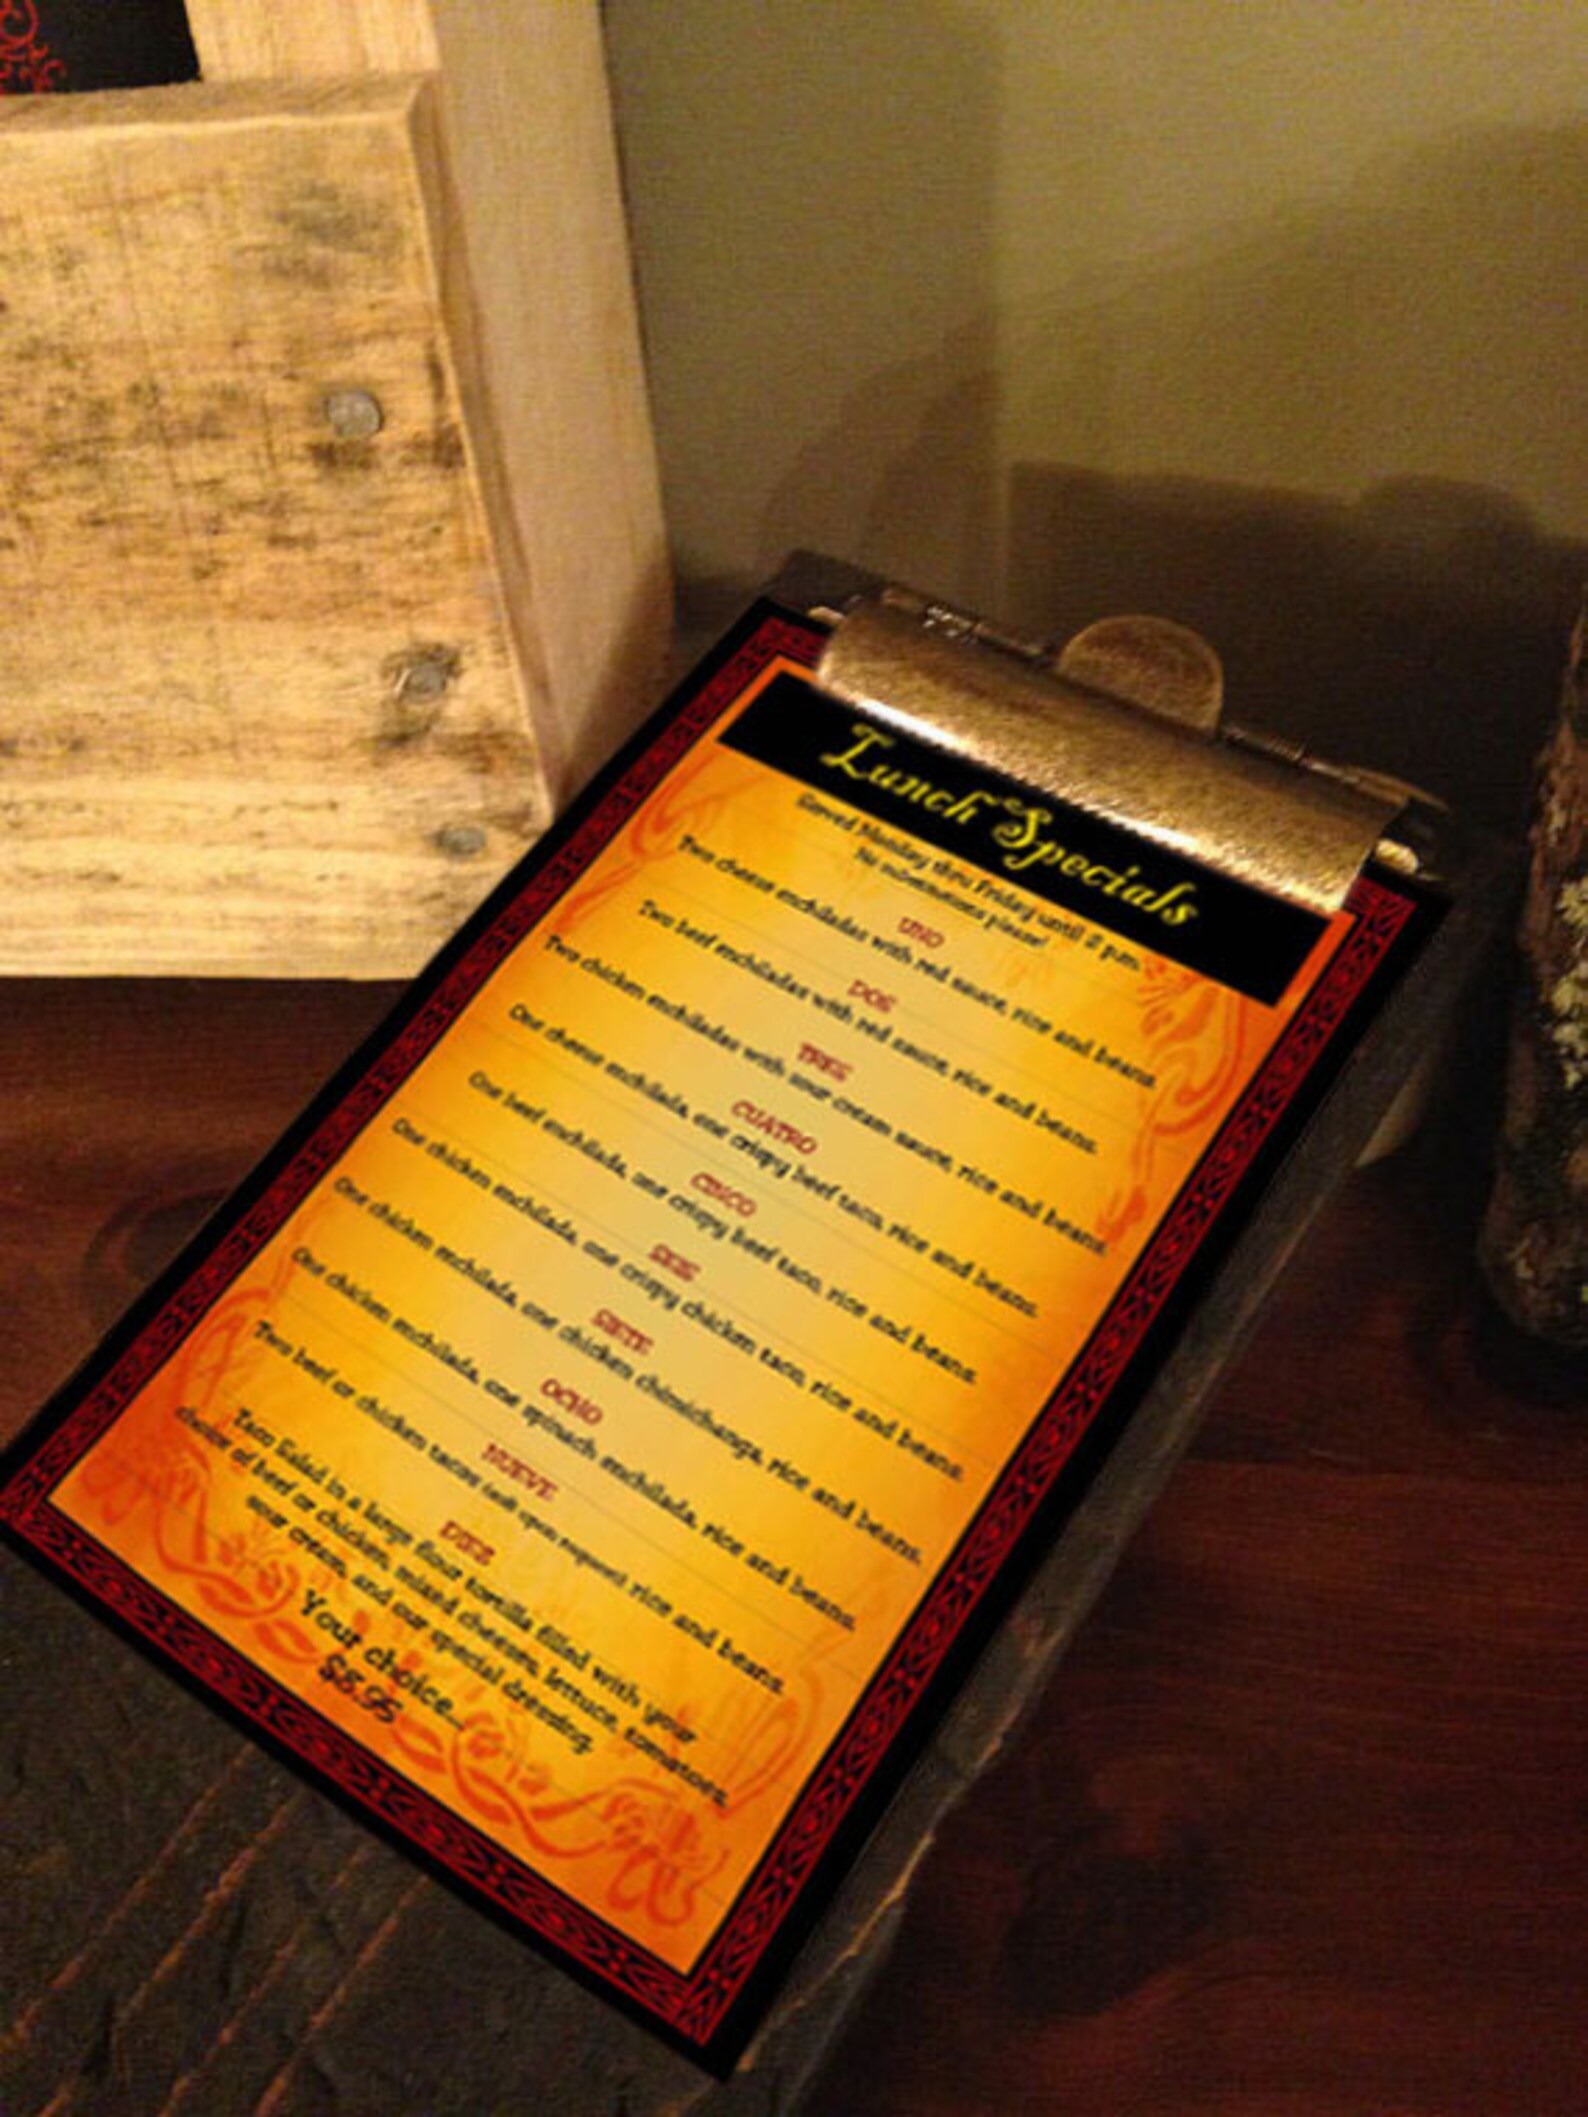 Lunch Specials
Served Monday thru Friday until 2 p.m.
No substitutions please!
UNO
Two cheese enchiladas with red sauce, rice and beans.
DOS
Two beef enchiladas with red sauce, rice and beans.
TRES
Two chicken enchiladas with sour cream sauce, rice and beans.
CUATRO
One cheese enchilada, one crispy beef taco, rice and beans.
CINCO
One beef enchilada, one crispy beef taco, rice and beans.
SEIS
One chicken enchilada, one crispy chicken taco, rice and beans.
SIETE
One chicken enchilada, one chicken chimichanga, rice and beans.
OCHO
One chicken enchilada, one spinach enchilada, rice and beans.
NUEVE
Two beef or chicken tacos (soft upon request) rice and beans.
DIEZ
Taco Salad in a large flour tortilla filled with your
choice of beef or chicken, mixed cheeses, lettuce, tomatoes,
sour cream, and our special dressing.
Your choice...
$8.95